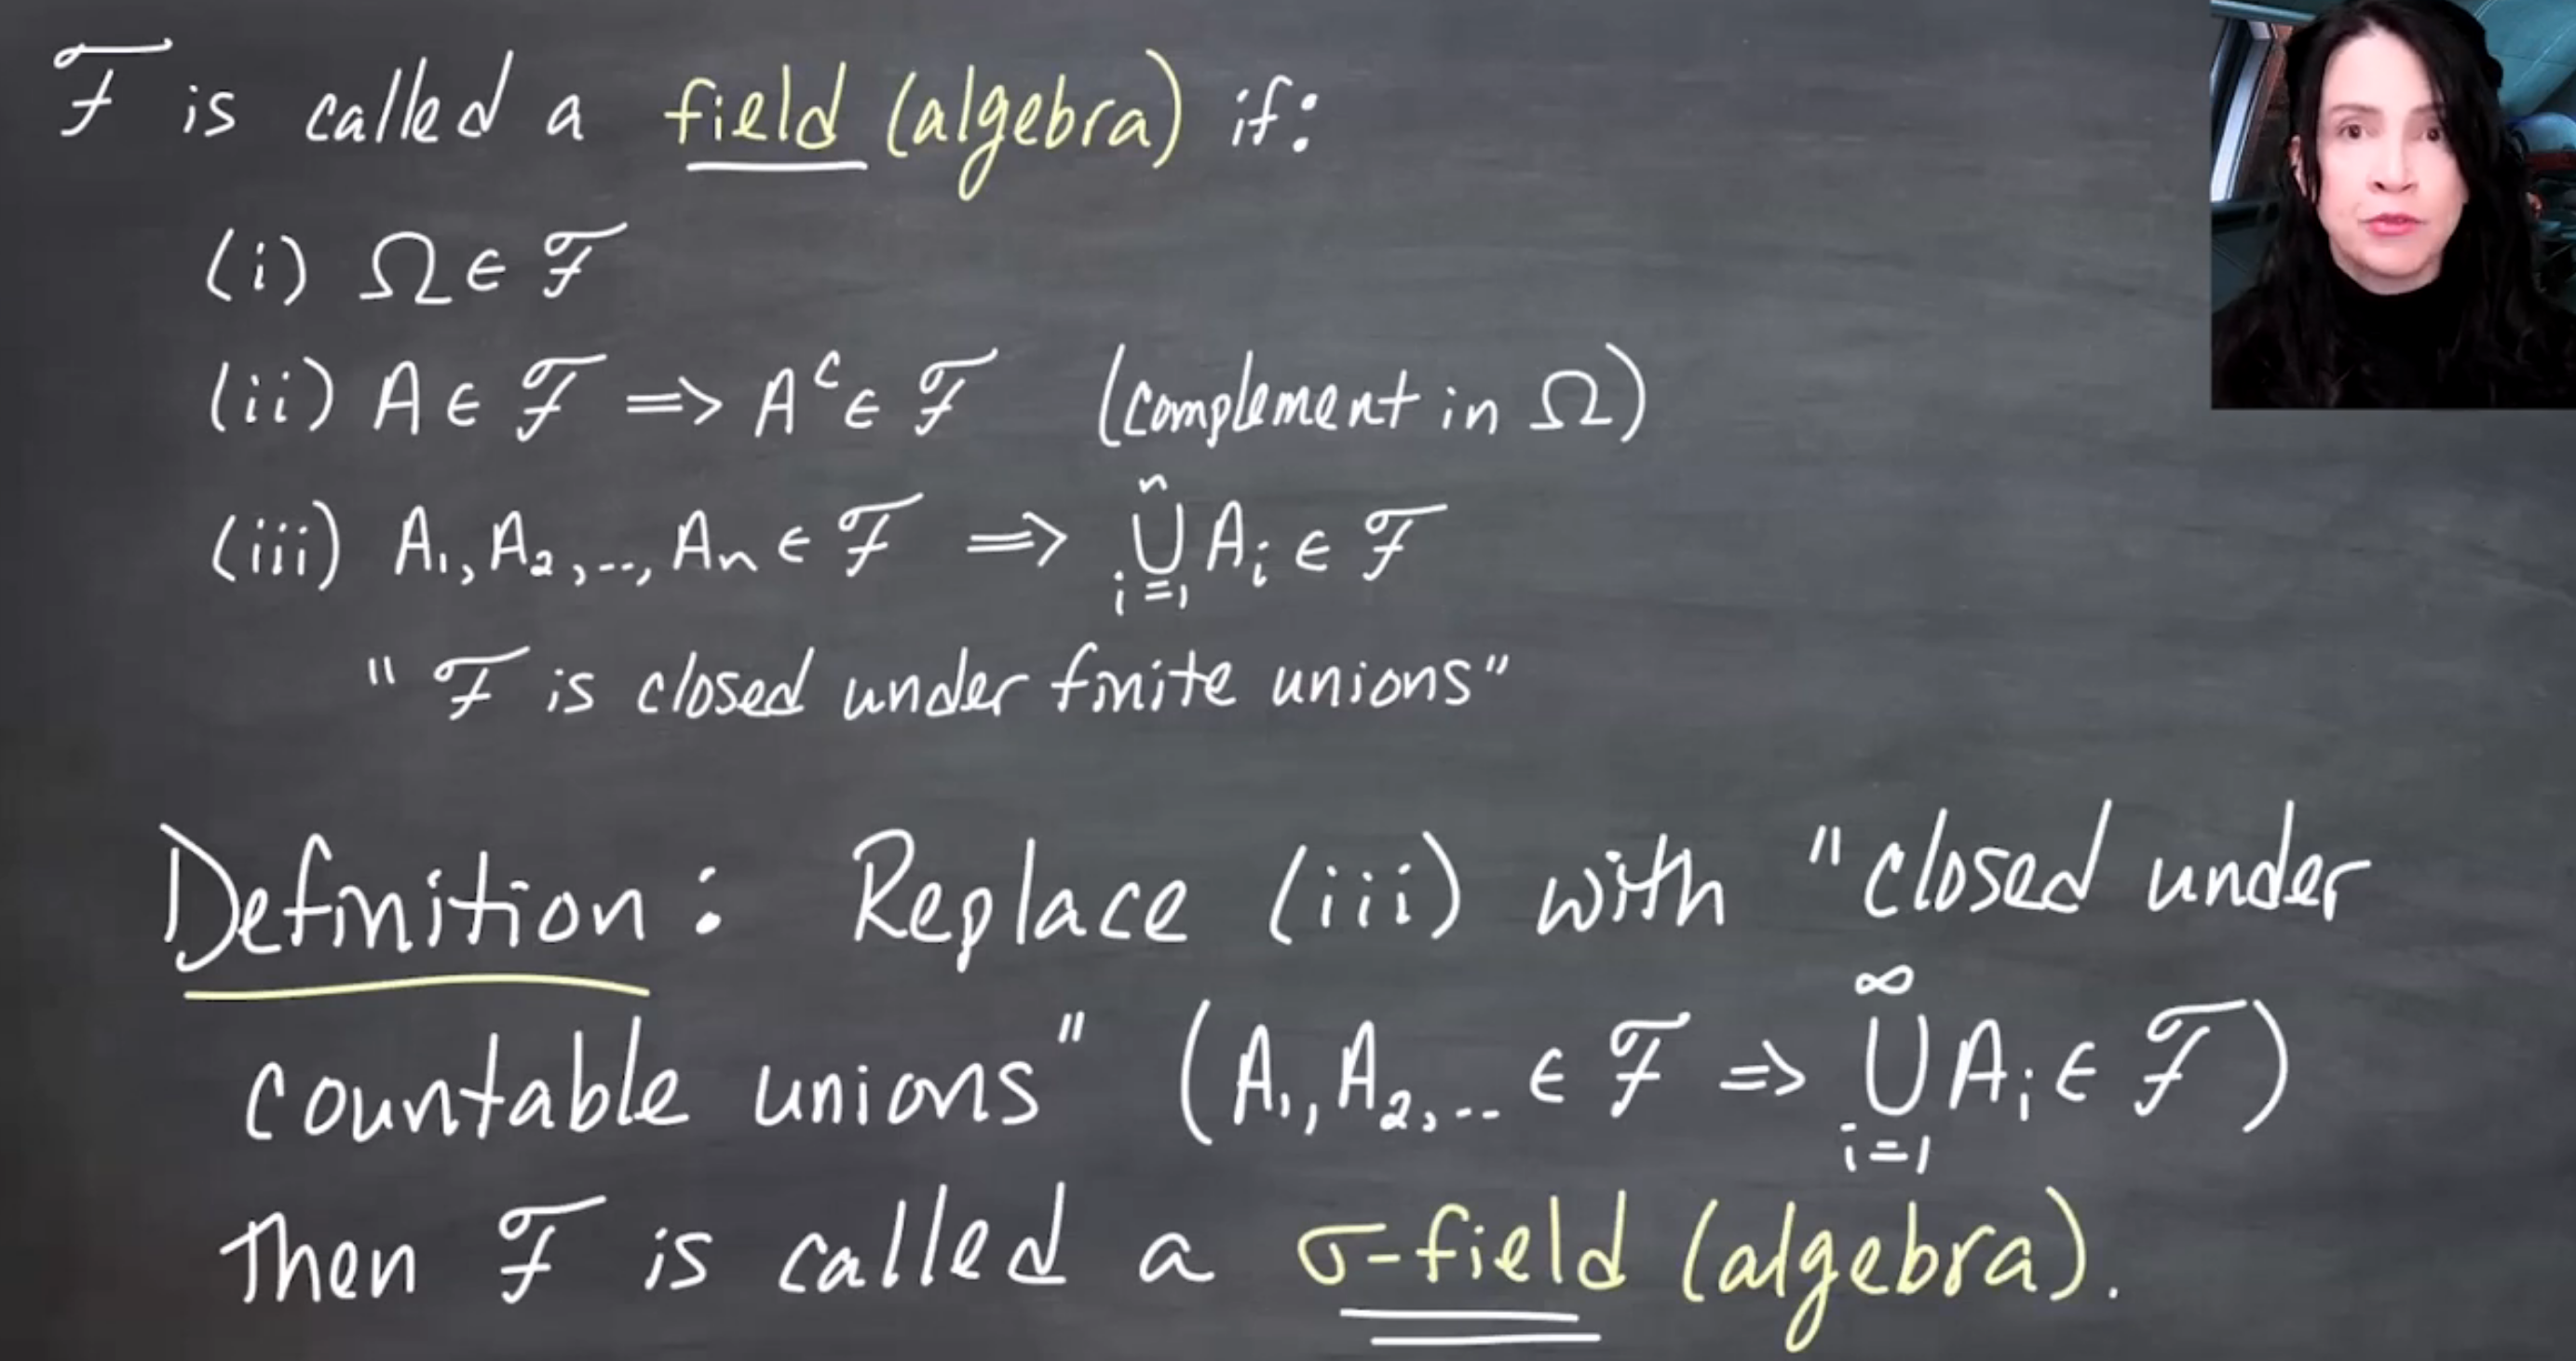 ℱ is called a field (algebra) if:
(i) Ω ∈ ℱ
(ii) A ∈ ℱ => Aᶜ ∈ ℱ (complement in Ω)
(iii) A₁, A₂, .., Aₙ ∈ ℱ => ⋃ᵢ₌₁ⁿ Aᵢ ∈ ℱ
"ℱ is closed under finite unions"
Definition: Replace (iii) with "closed under
countable unions" (A₁, A₂, .. ∈ ℱ => ⋃ᵢ₌₁^∞ Aᵢ ∈ ℱ)
Then ℱ is called a σ-field (algebra).